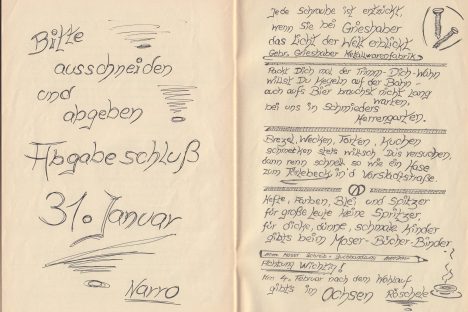 Bitte
ausschneiden
und
abgeben
Abgabeschluß
31. Januar
Narro
Jede Schraube ist entzückt,
wenn sie bei Grieshaber
das Licht der Welt erblickt
Gebr. Grieshaber Metallwarenfabrik
Packt Dich mal der Trimm-Dich-Wahn
willst Du kegeln auf der Bahn -
auch aufs Bier brauchst nicht lang
warten,
bei uns in Schmieders
Herrengarten.
Brezel, Wecken, Torten, Kuchen
schmecken stets
versuchen,
dann renn schnell so wie ein Hase
zum Törlebeck in'd Vorstadtstraße.
Hefte, Farben, Blei und Spitzer
für große Leute keine Spritzer
für dicke, dünne, schmale Kinder
gibts beim Moser-Bücher-Binder
Moser Schreib- Buchhandlung
Achtung Wichtig!
Am 4. Februar nach dem
gibts im Ochsen